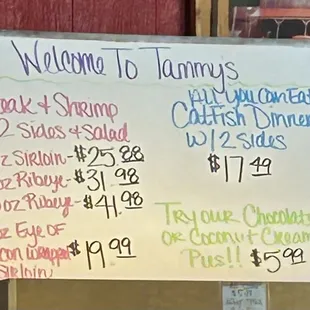 Welcome To Tammys
eak & Shrimp
2 Sides & Salad
oz Sirloin - $25.88
oz Ribeye - $31.98
oz Ribeye - $41.98
oz Eye of
con Wrapped
Sirloin
$19.99
All You Can Eat
Catfish Dinner
w/2 Sides
$17.49
Try our Chocolate
or Coconut Cream
Pies!! $5.99